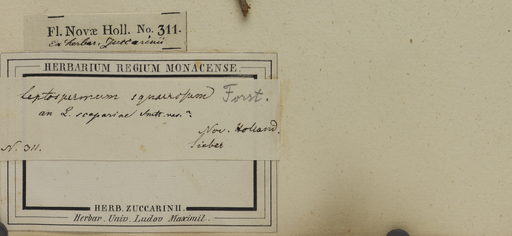 Fl. Novæ Holl. No. 311.
Ex herbar. Zuccarinii
HERBARIUM REGIUM MONACENSE.
Leptospermum squarrosum Forst.
an L. scopariae Smith. var.?
Nov. Holland.
N. 311. Sieber
HERB. ZUCCARINII.
Herbar. Univ. Ludov. Maximil.